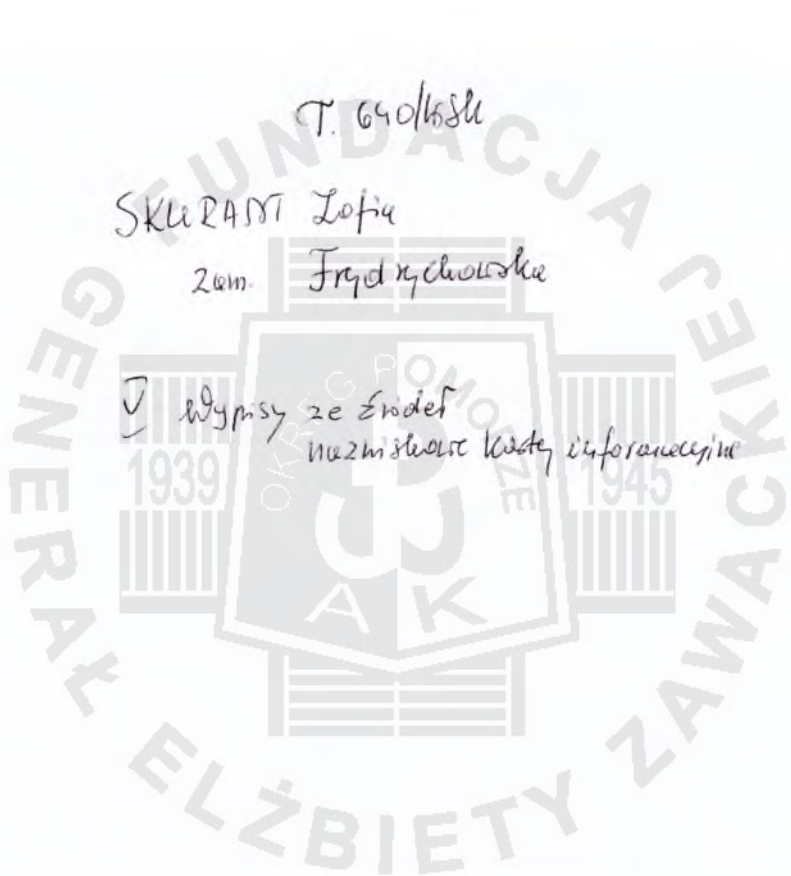 T. 640/WSK
SKURANT Zofia
zam. Frydrychowska
V Wypisy ze źródeł
nazwiskowe karty informacyjne
FUNDACJA GENERAŁ ELŻBIETY ZAWACKIEJ
OKRĘG POMORZE
1939 1945
AK